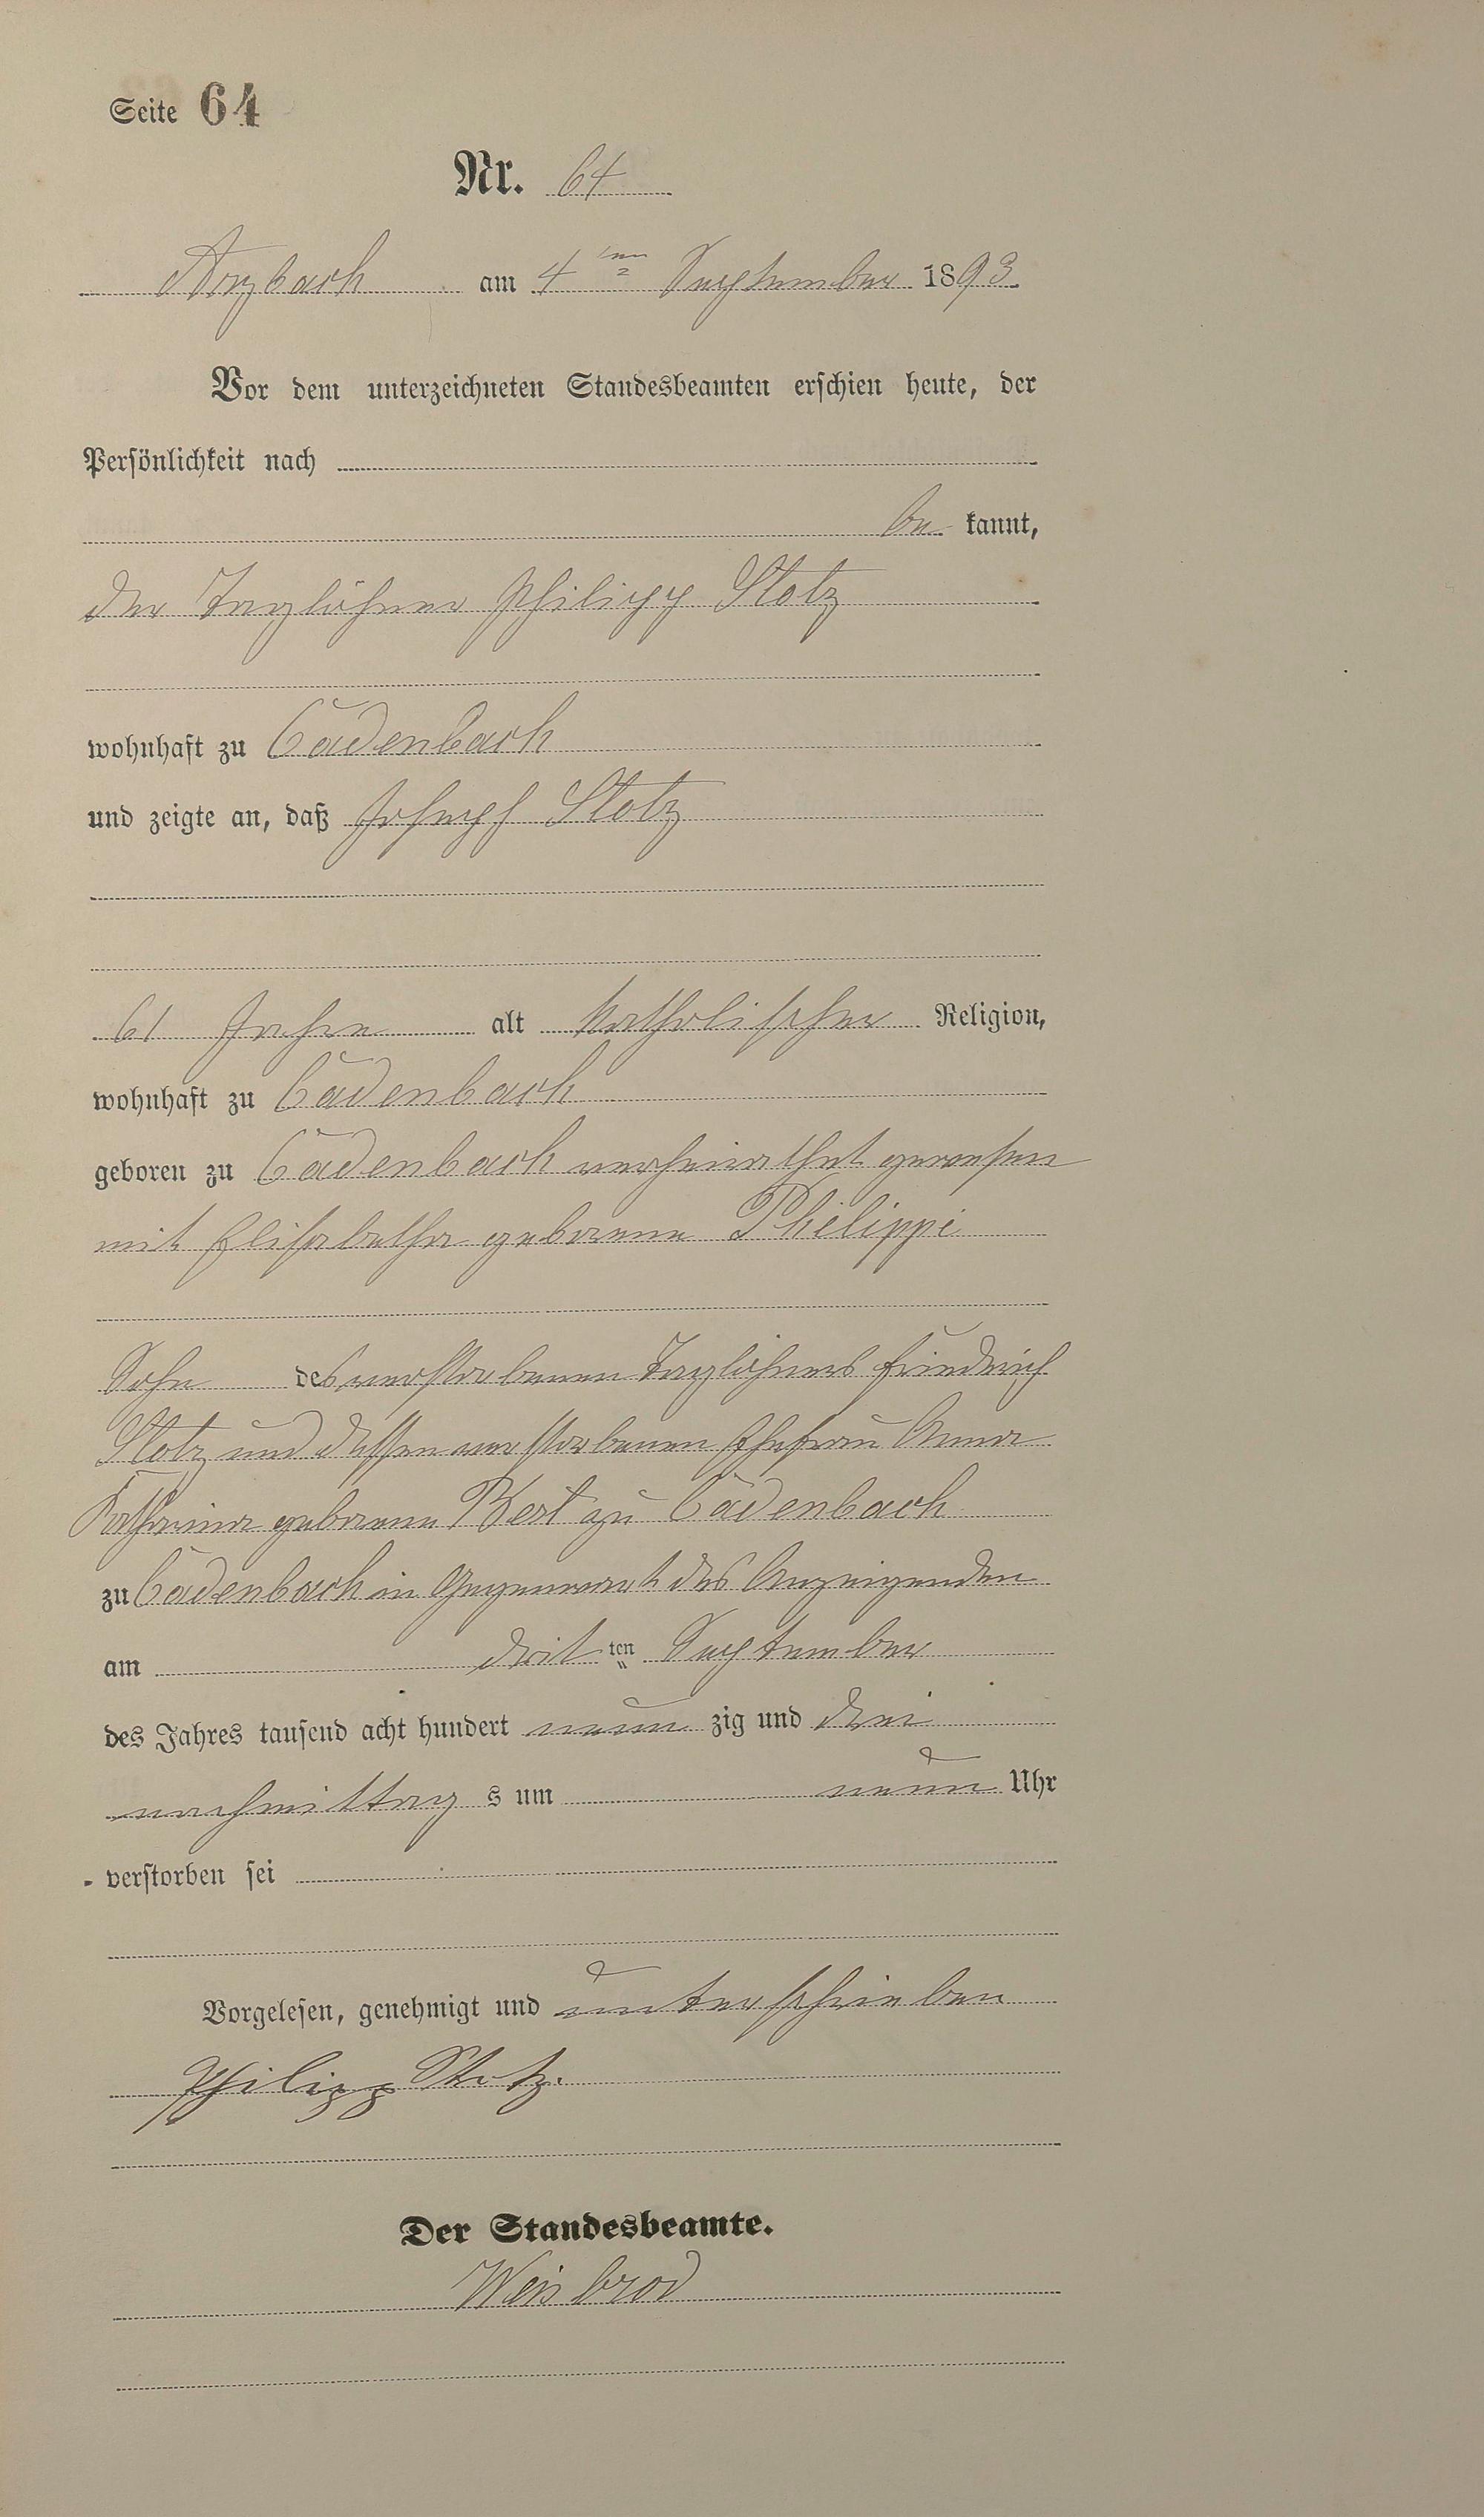 Seite 64
Nr. 64
Arzbach am 4ten September 1893.
Vor dem unterzeichneten Standesbeamten erschien heute, der
Persönlichkeit nach
be kannt,
der Taglöhner Philipp Stotz
wohnhaft zu Cadenbach
und zeigte an, daß Joseph Stotz
61 Jahre alt katholischer Religion,
wohnhaft zu Cadenbach
geboren zu Cadenbach verheirathet gewesen
mit Elisabetha geborene Philippi
Sohn des verstorbenen Taglöhners Friedrich
Stotz und dessen verstorbenen Ehefrau Anna
Katharina geborene zu Cadenbach
zu Cadenbach in Gegenwart des Anzeigenden
am dritten September
des Jahres tausend acht hundert neun zig und drei
nachmittag s um neun Uhr
verstorben sei
Vorgelesen, genehmigt und unterschrieben
Philipp Stotz.
Der Standesbeamte.
Weisbrod